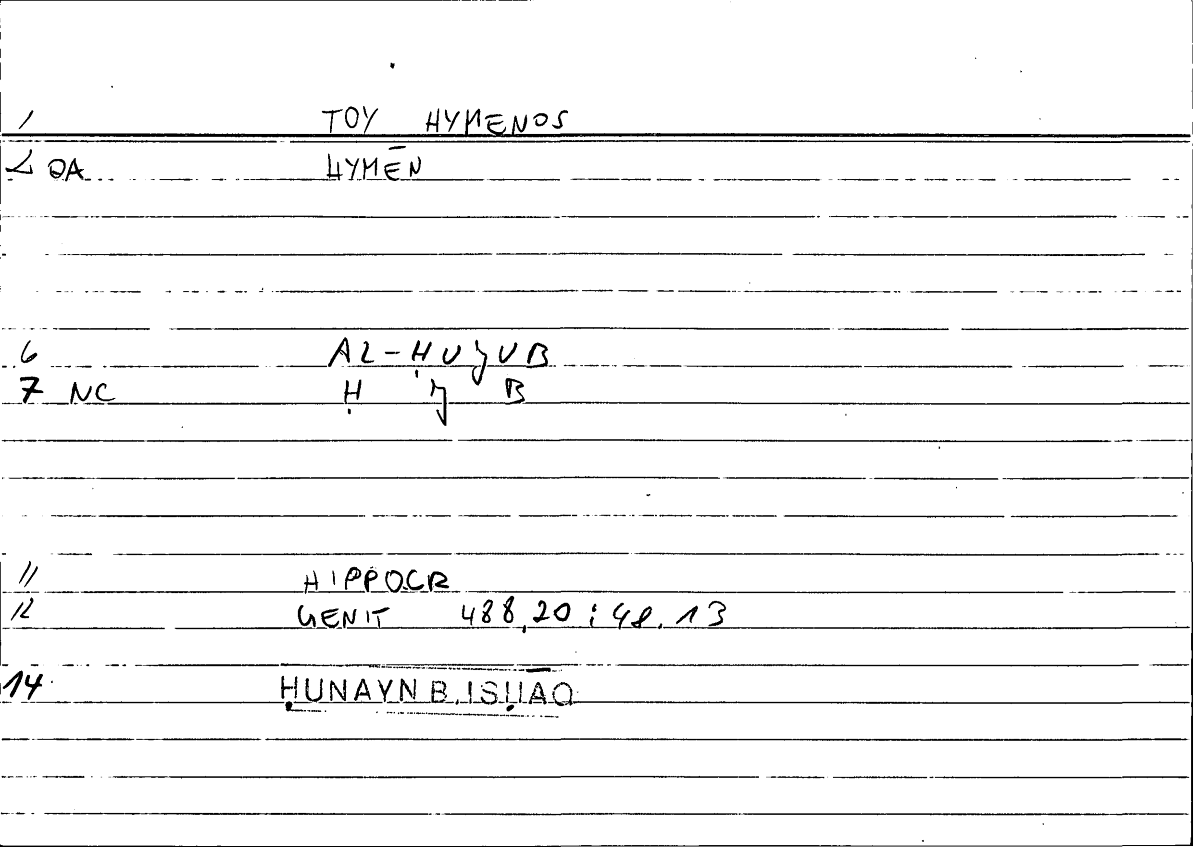 1 TOY HYMENOS
2 QA HYMĒN
6 AL-ḤUǧUB
7 NC Ḥ ǧ B
11 HIPPOCR
12 GENIT 488,20 : 48.13
14 ḤUNAYN B. ISḤĀQ